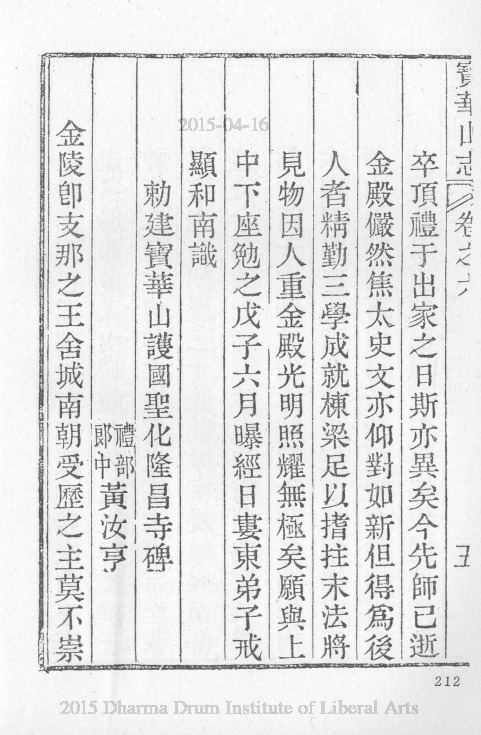 寶華山志 卷之六 五
卒頂禮于出家之日斯亦異矣今先師已逝
金殿儼然焦太史文亦仰對如新但得爲後
人者精勤三學成就棟梁足以搘拄末法將
見物因人重金殿光明照耀無極矣願與上
中下座勉之戊子六月曝經日婁東弟子戒
顯和南識
勅建寶華山護國聖化隆昌寺碑
禮部郎中黃汝亨
金陵卽支那之王舍城南朝受歷之主莫不崇
212
2015-04-16
2015 Dharma Drum Institute of Liberal Arts